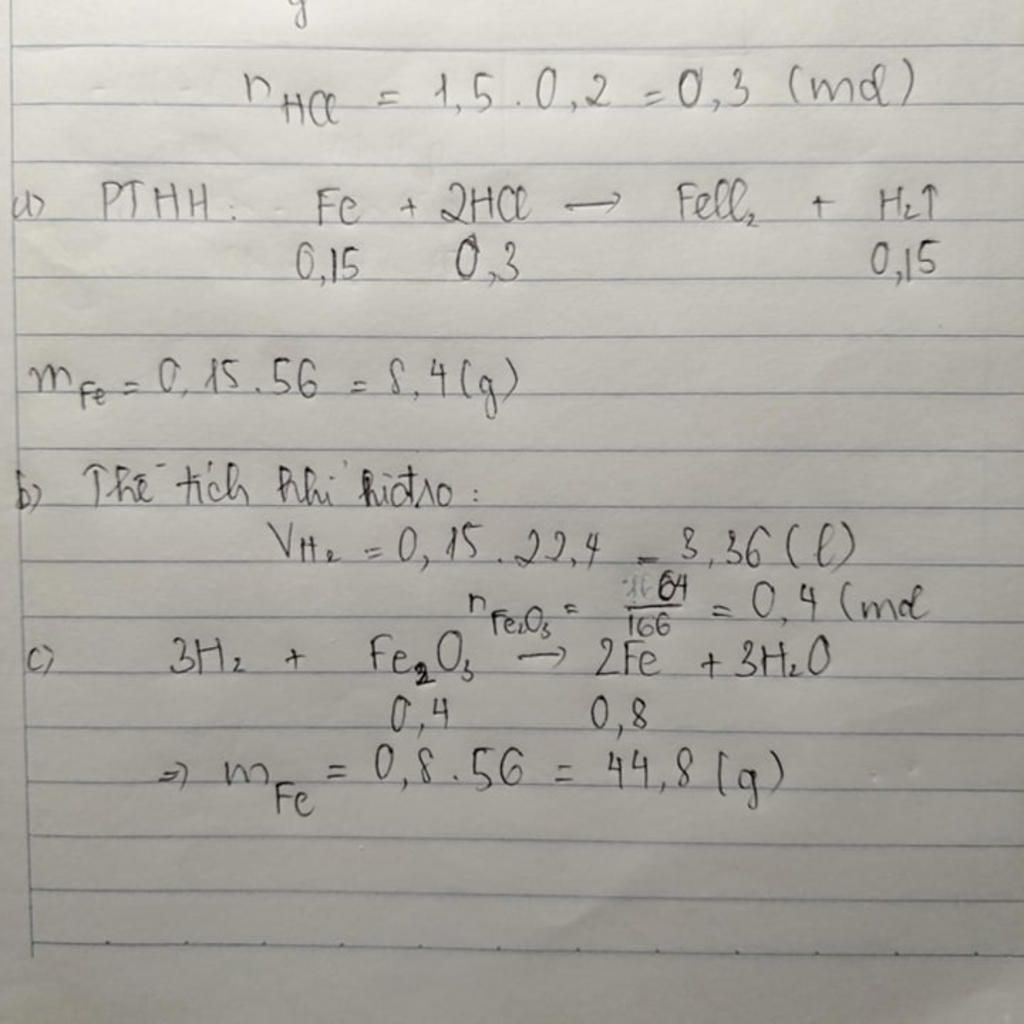 n HCl = 1,5 . 0,2 = 0,3 (mol)
a) PTHH: Fe + 2HCl → FeCl₂ + H₂↑
0,15 0,3 0,15
m Fe = 0,15 . 56 = 8,4 (g)
b) Thể tích khí hiđro :
V H₂ = 0,15 . 22,4 = 3,36 (l)
n Fe₂O₃ = 64/166 = 0,4 (mol
c) 3H₂ + Fe₂O₃ → 2Fe + 3H₂O
0,4 0,8
=> m Fe = 0,8 . 56 = 44,8 (g)